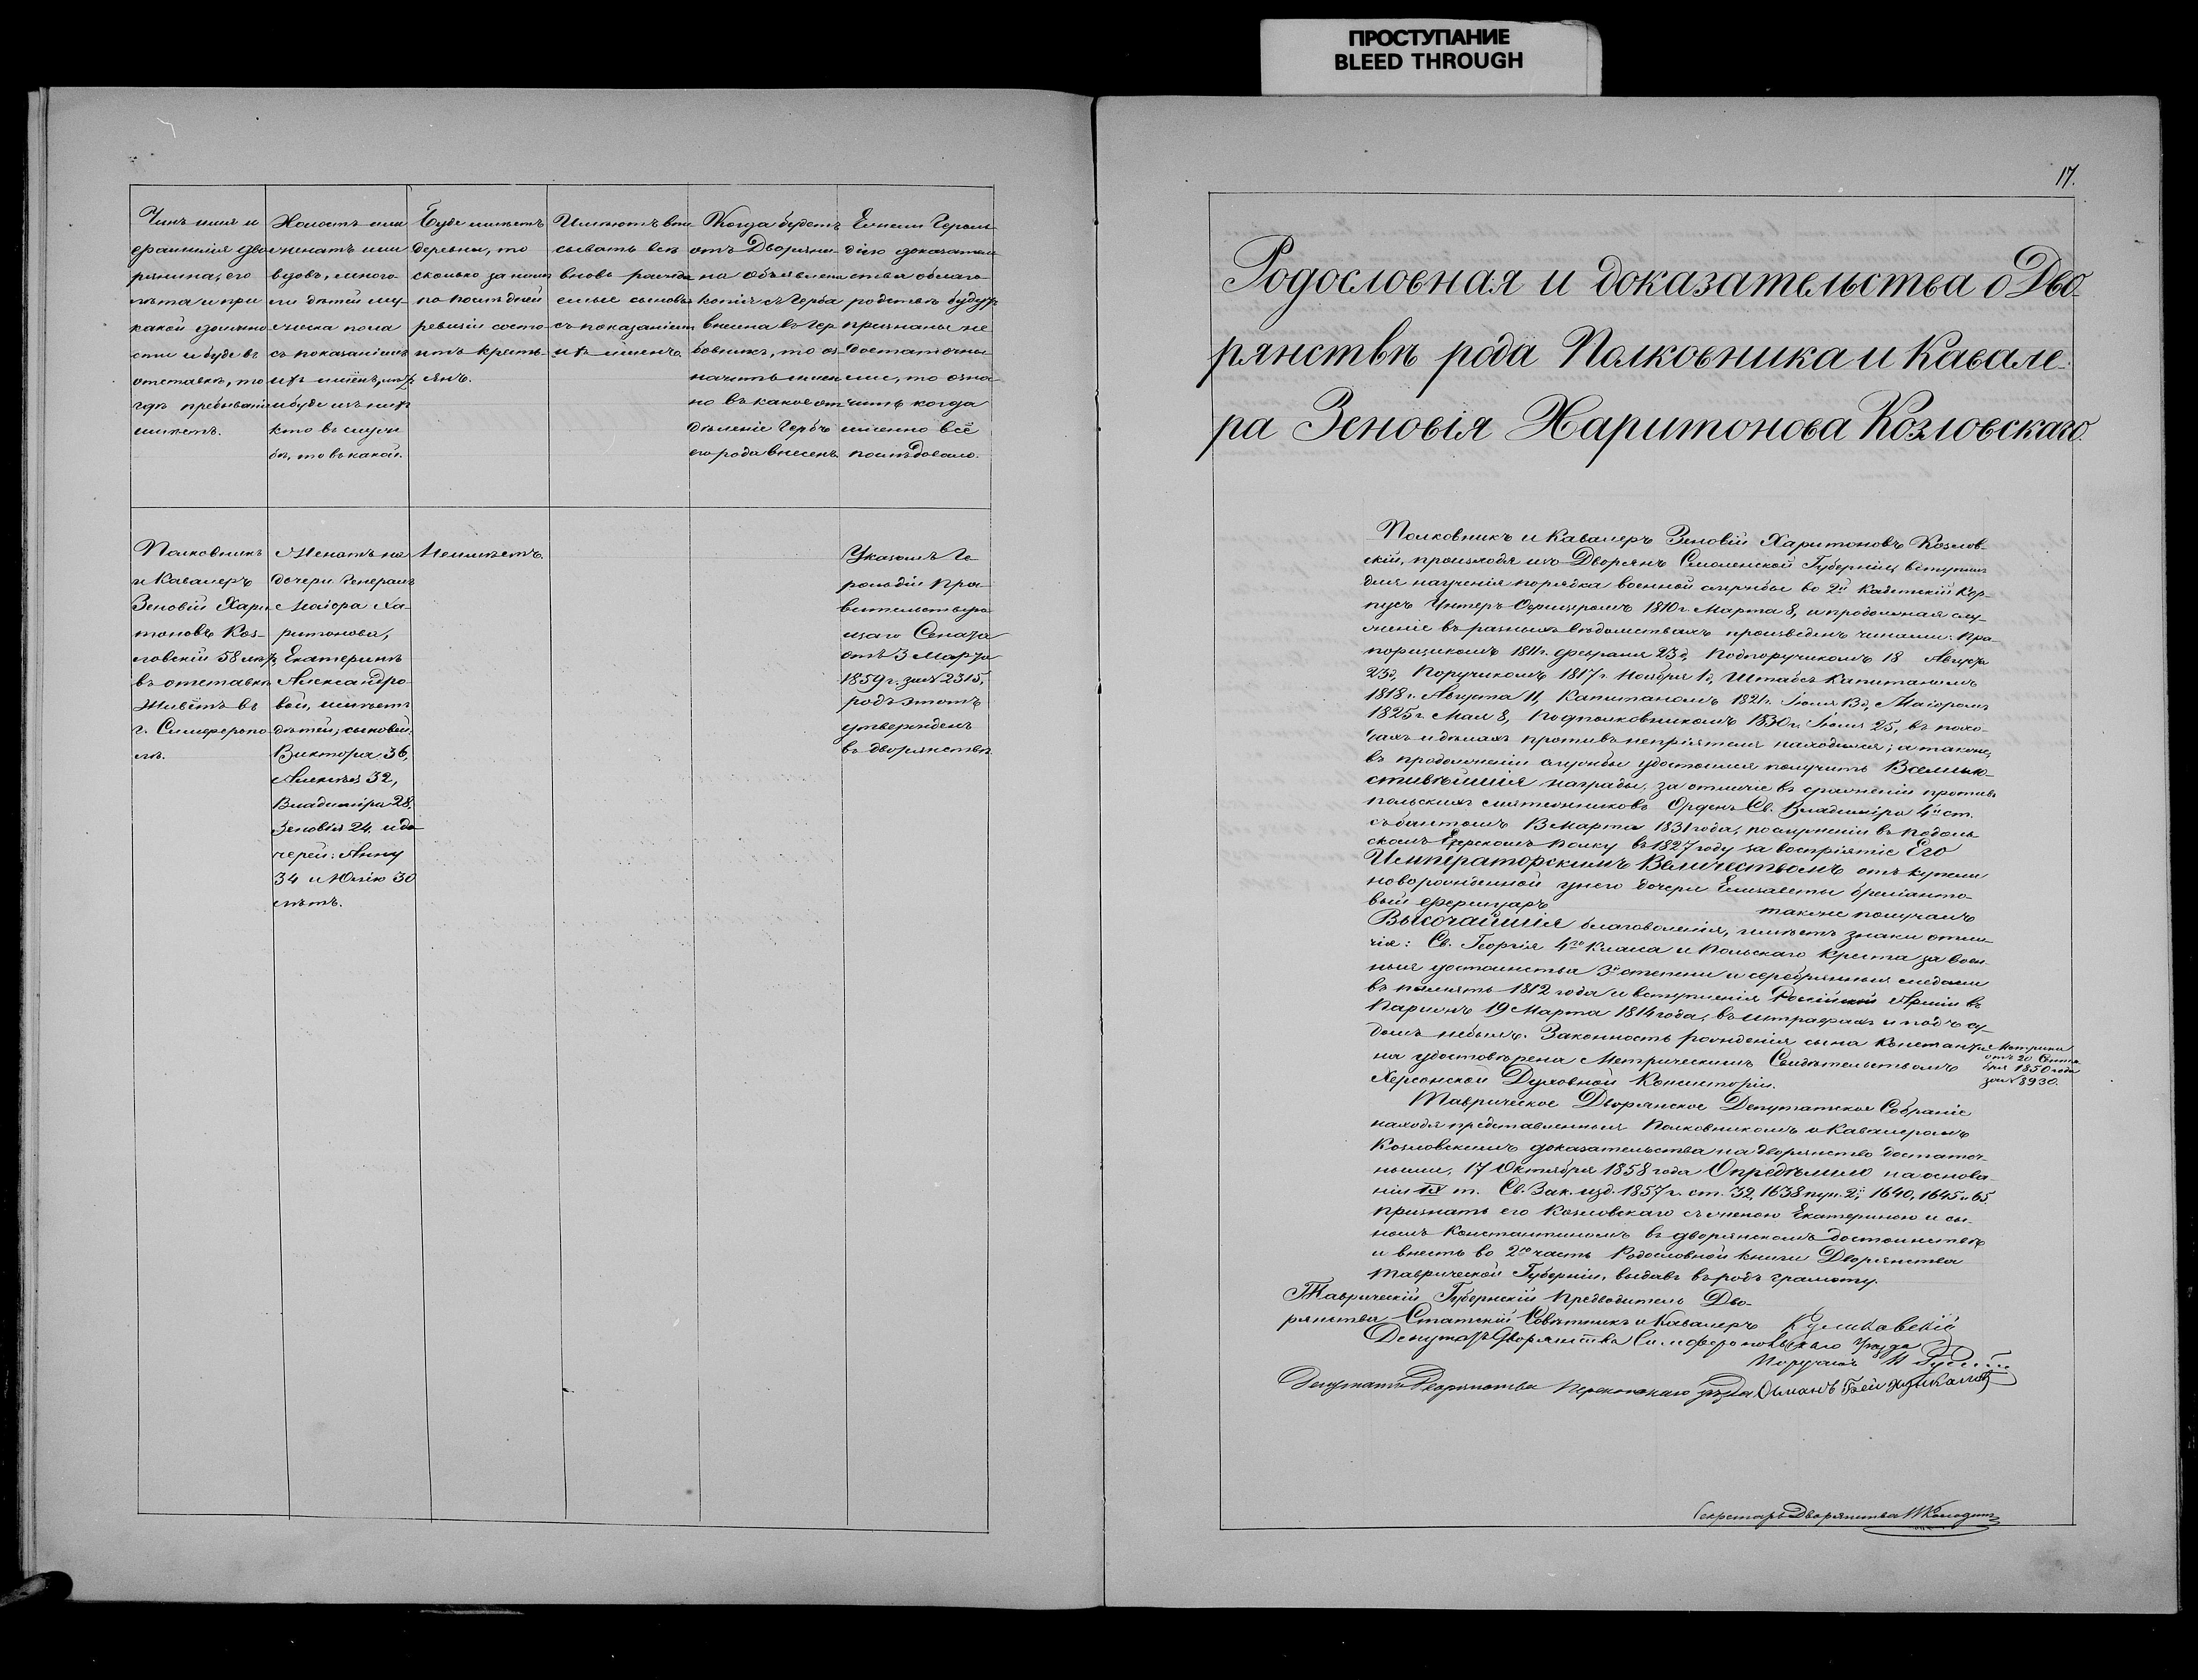 ПРОСТУПАНИЕ
BLEED THROUGH
Чинъ имя и
фамилія дво
рянина, его
лѣта и при
какой должно
сти и буде въ
отставкѣ, то
гдѣ пребываніе
имѣетъ.
Холостъ или
женатъ или
вдовъ, много
ли дѣтей му-
жеска пола
съ показаніемъ
ихъ имёнъ, лѣтъ
и буде изъ нихъ
кто въ служ
бѣ, то въ какой.
Буде имѣетъ
деревни, то
сколько за нимъ
по послѣдней
ревизіи состо
итъ кресть-
янъ.
Имѣютъ впи
сывать всѣ
вновь рожда
емые сыновья
съ показаніемъ
ихъ именъ.
Когда будетъ
отъ Дворяни-
на объявлена
копія съ Герба
внесена въ Гер
бовникъ, то оз-
начить имен
но въ какое от
дѣленіе Гербъ
его рода внесенъ
Ежели Героль
діею доказатель
ства облаго-
родствѣ будутъ
признаны не
достаточны
ми, то озна-
чить когда
именно всё
послѣдовало.
Полковникъ
и Кавалеръ
Зеновій Хари
тоновъ Коз-
ловскій 58 лѣтъ
въ отставкѣ
Живётъ въ
г. Симферопо
лѣ.
Женатъ на
дочери Генералъ
Маіора Ха-
ритонова,
Екатеринѣ
Александро-
вой, имѣетъ
дѣтей; сыновей:
Виктора 36,
Алексѣя 32,
Владиміра 28,
Зеновія 24, и до
черей: Анну
34 и Юлію 30
лѣтъ.
Неимѣетъ.
Указомъ Ге
рольдіи Пра-
вительствую
щаго Сената
отъ 3 Марта
1859 г. за № 2315,
родъ этотъ
утвержденъ
въ дворянствѣ.
17.
Родословная и доказательства о Дво-
рянствѣ рода Полковника и Кавале-
ра Зеновія Харитонова Козловскаго.
Полковникъ и Кавалеръ Зеновій Харитоновъ Козлов-
скій, происходя изъ Дворянъ Смоленской Губерніи, вступилъ
для изученія порядка военной службы во 2й Кадетскій Кор-
пусъ Унтеръ-Офицеромъ 1810 г. Марта 8, и продолжая слу-
женіе въ разныхъ вѣдомствахъ произведенъ чинами: Пра-
порщикомъ 1811 г. февраля 23 д, Подпоручикомъ 18 Августа
23 д, Поручикомъ 1817 г. Ноября 1 д, Штабсъ Капитаномъ
1818 г. Августа 11, Капитаномъ 1821 г. Іюля 13 д, Маіоромъ
1825 г. Мая 8, Подполковникомъ 1830 г. Іюля 25, въ похо-
дахъ и дѣлахъ противъ непріятеля находился; а также,
въ продолженіи службы удостоился получить Всемило-
стивѣйшія награды, за отличіе въ сраженіи противъ
польскихъ мятежниковъ Орденъ Св. Владиміра 4й ст.
съ бантомъ 13 Марта 1831 года, по служеніи въ Подоль
скомъ Егерскомъ полку въ 1827 году за воспріятіе Его
Императорскимъ Величествомъ отъ купели
новорожденной у него дочери Елизаветы бриліанто-
вый фермуаръ также получалъ
Высочайшія благоволенія, имѣетъ знаки отли-
чія: Св. Георгія 4го Класса и Польскаго Креста за воен-
ныя достоинства 3й степени и серебрянныя медали
въ память 1812 года и вступленія Россійской Арміи въ
Парижъ 19 Марта 1814 года, въ штрафахъ и подъ су-
домъ небылъ. Законность рожденія сына Констант-
на удостовѣрена Метрическимъ Свидѣтельствомъ
Херсонской Духовной Консисторіи.
Метрика
отъ 20 Сентя-
бря 1850 года
за № 8930.
Таврическое Дворянское Депутатское Собраніе
находя представленныя Полковникомъ и Кавалеромъ
Козловскимъ доказательства на дворянство достаточ-
ными, 17 Октября 1858 года Опредѣлило на основа-
ніи IX т. Св. Зак. изд. 1857 г. ст. 32, 1638 пун. 2й, 1640, 1645 и 65
признать его Козловскаго съ женою Екатериною и сы-
номъ Константиномъ въ дворянскомъ достоинствѣ
и внесть во 2ю часть Родословной книги Дворянства
Таврической Губерніи, выдавъ въ родъ грамоту.
Таврическій Губернскій Предводитель Дво-
рянства Статскій Совѣтникъ и Кавалеръ
Депутатъ Дворянства Симферопольскаго Уѣзда
Поручикъ
Депутатъ Дворянства Перекопскаго уѣзда Османъ Бей
Секретарь Дворянства